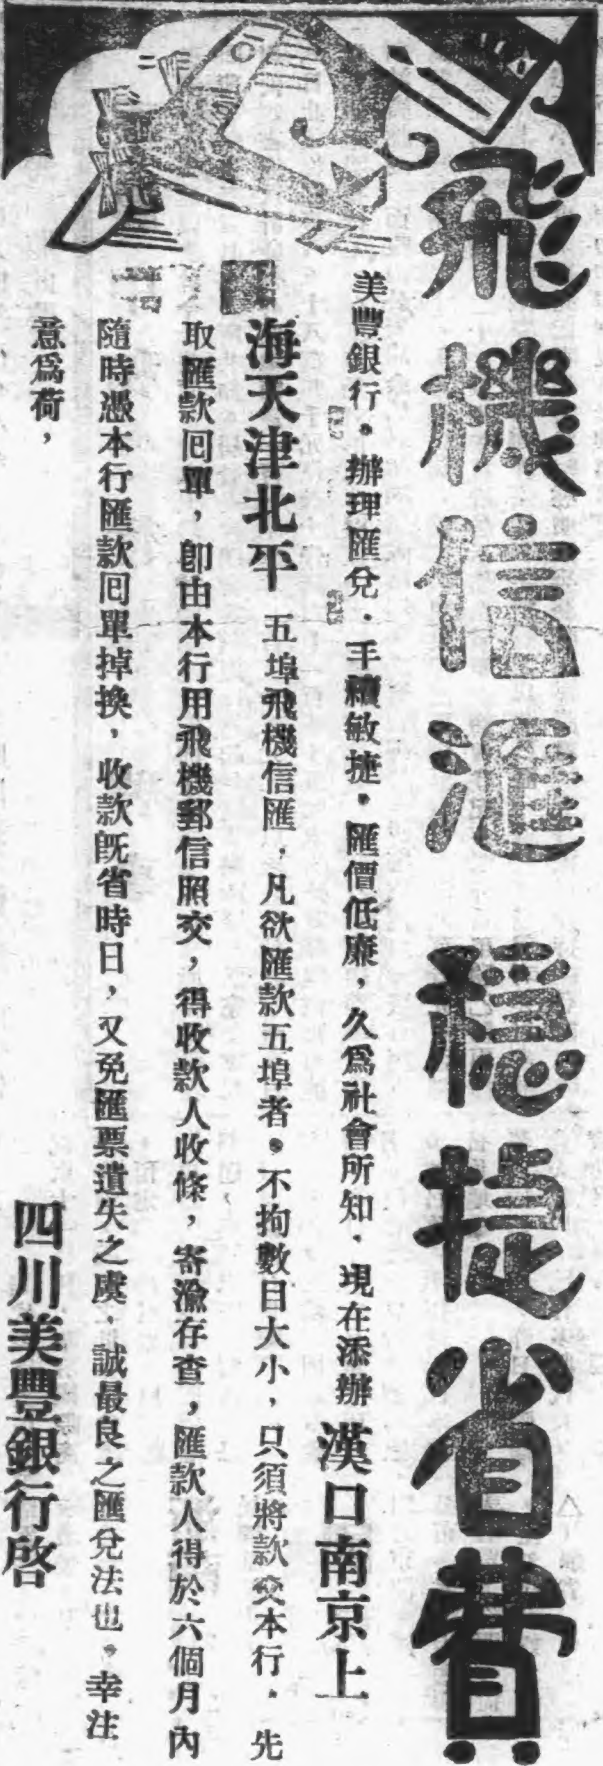 飛機信滙 穩捷省費
美豐銀行。辦理匯兌．手續敏捷．匯價低廉，久爲社會所知．現在添辦漢口南京上
海天津北平五埠飛機信匯，凡欲匯款五埠者。不拘數目大小，只須將款交本行．先
取匯款囘單，卽由本行用飛機郵信照交，得收款人收條，寄渝存查，匯款人得於六個月內
隨時憑本行匯款囘單掉換，收款旣省時日，又免匯票遺失之虞．誠最良之匯兌法也。幸注
意爲荷，
四川美豐銀行啓